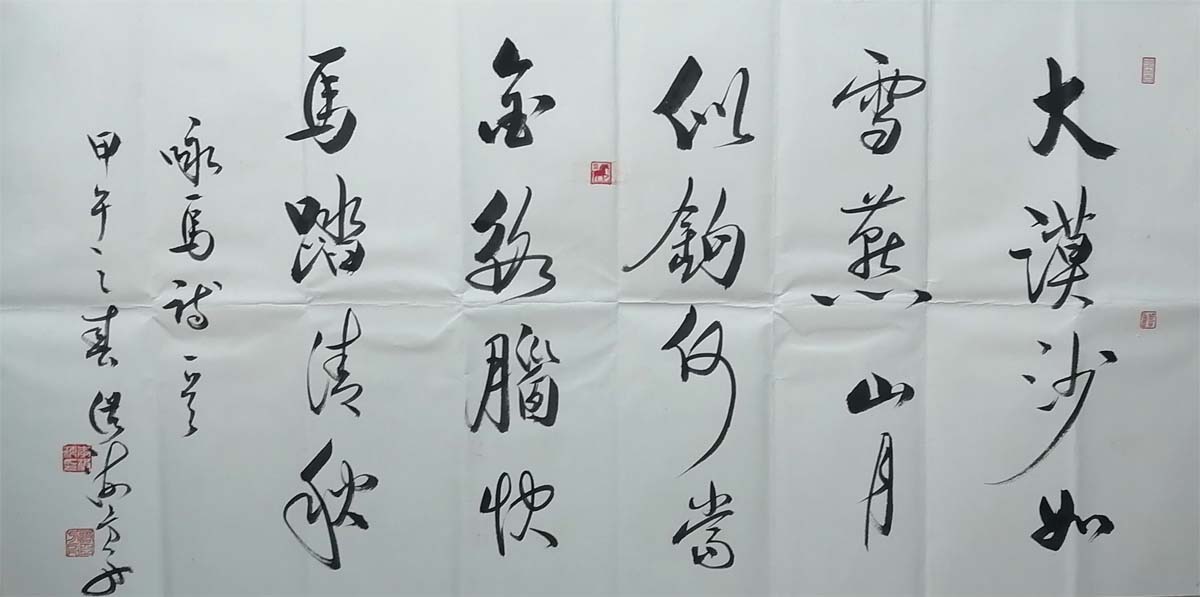 大漠沙如
雪燕山月
似鈎何當
金絡腦快
馬踏清秋
咏馬詩一首
甲午之春